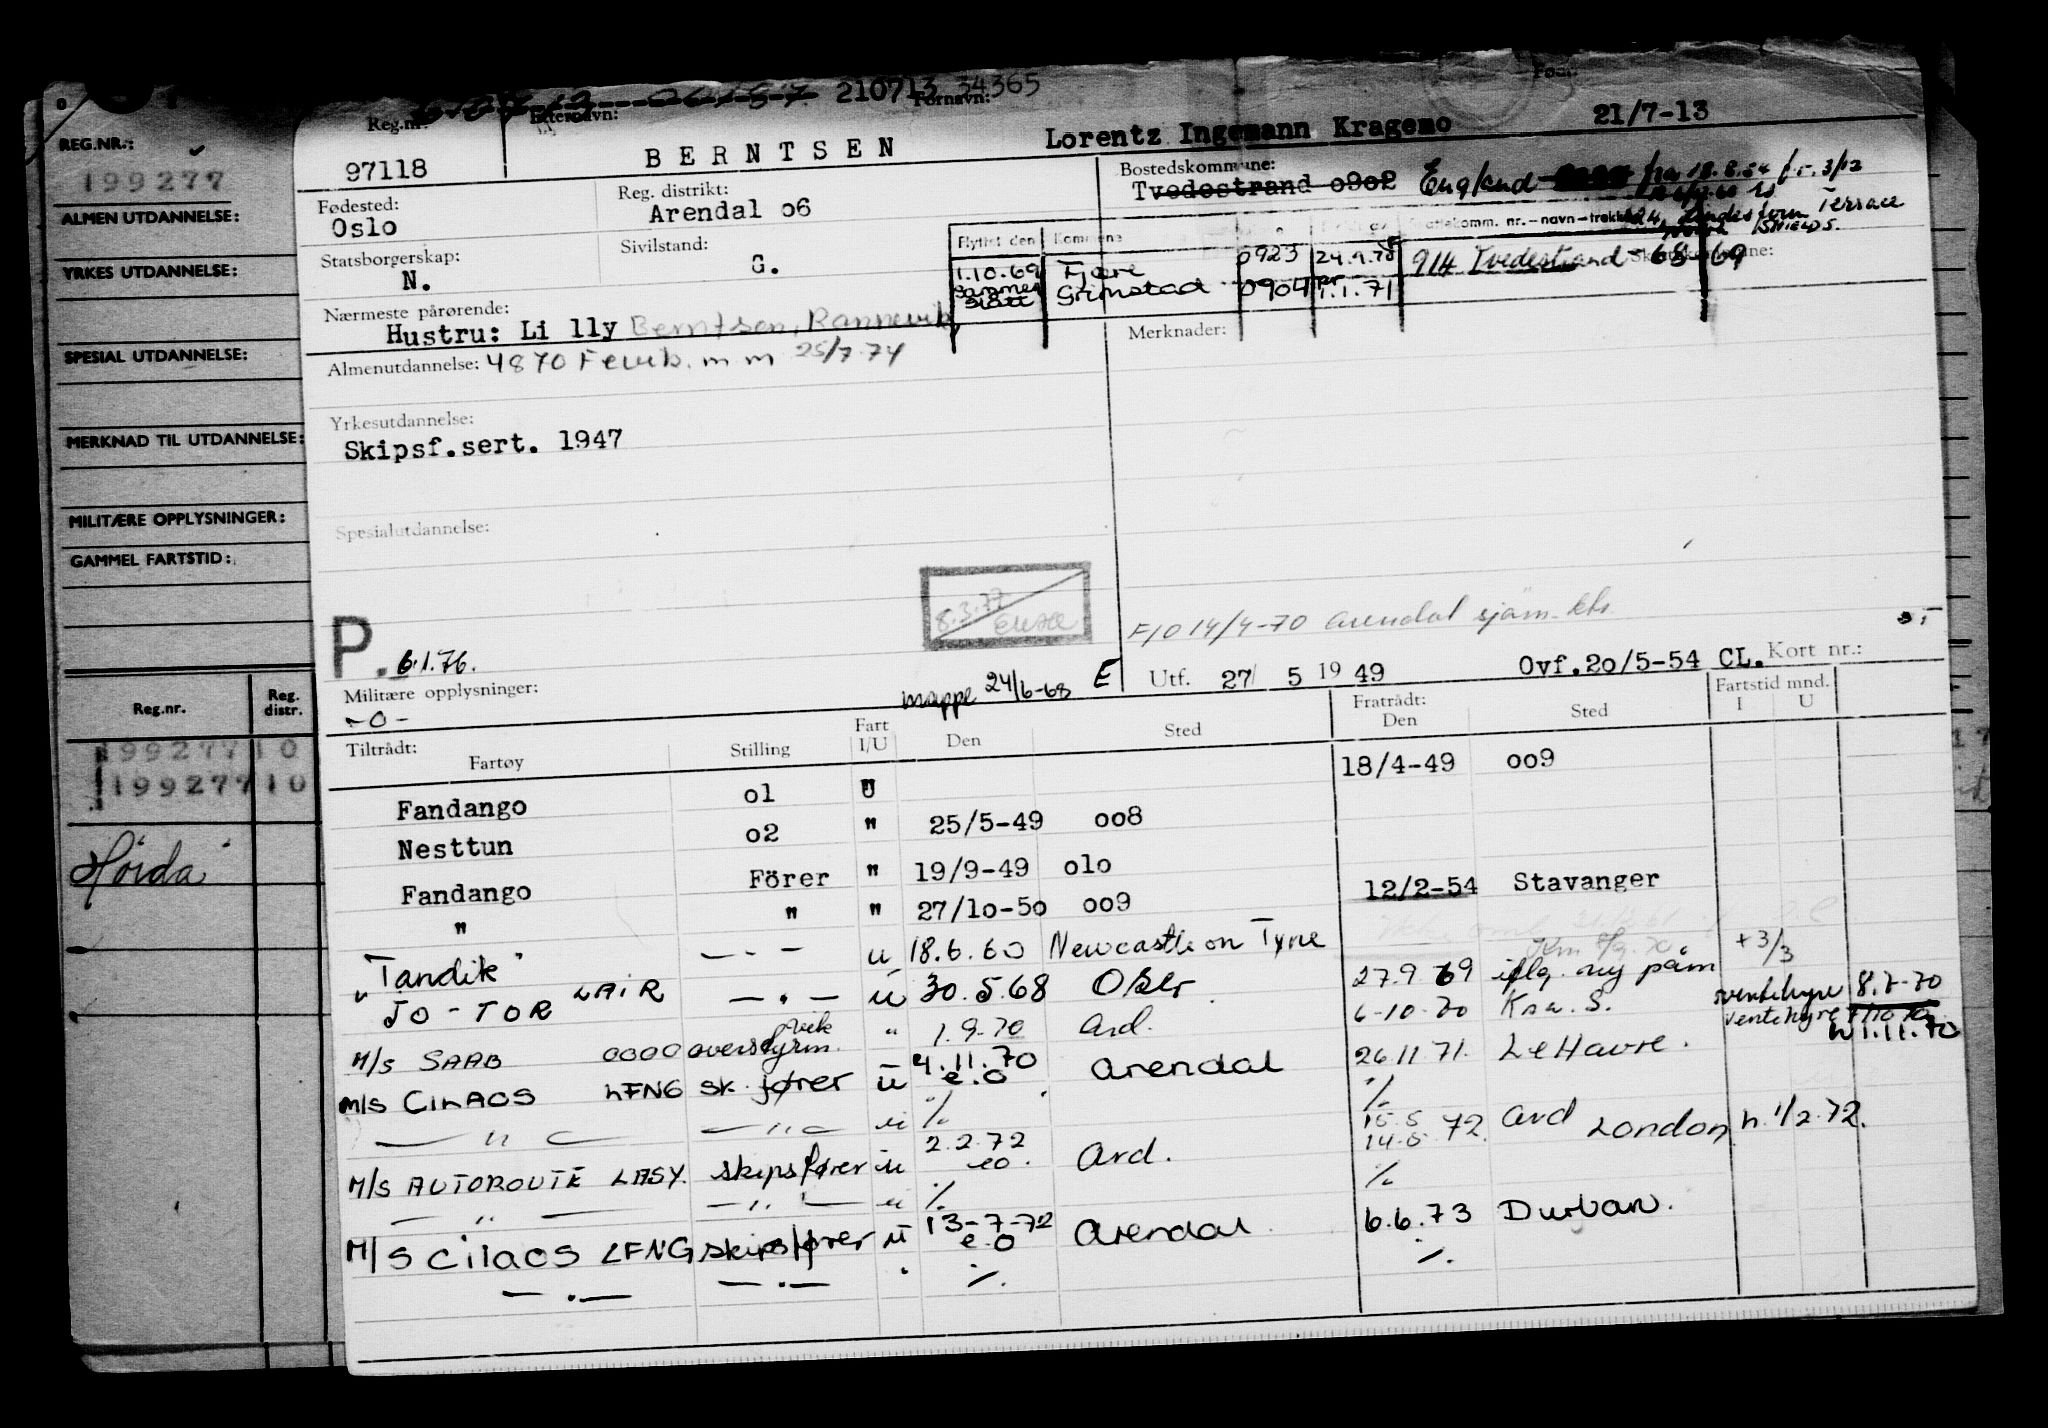 210713 34365
Reg.nr. Etternavn: Fornavn: Født:
97118 BERNTSEN Lorentz Ingemann Kragemo 21/7-13
Fødested: Reg. distrikt: Bostedskommune:
Oslo Arendal o6 Tvedestrand o9o2 England
Terrace
SHIELDS.
Statsborgerskap: Sivilstand:
N. G.
Flyttet den Kommune
1.10.69 Fjære 0923 24.9.70 914 Tvedestrand - 68 69
Grimstad 0904 1.1.71
Nærmeste pårørende:
Hustru: Li lly Berntsen, Rannevik
Merknader:
Almenutdannelse: 4870 Fevik. m m 25/7.74
Yrkesutdannelse:
Skipsf.sert. 1947
Spesialutdannelse:
8.3.77
F/O 14/4-70 Arendal sjøm.
P. 6.1.76.
Utf. 27/ 5 19 49 Ovf.2o/5-54 CL. Kort nr.:
Militære opplysninger: mappe 24/6-68 E
-0-
Tiltrådt: Fartøy Stilling Fart I/U Den Sted Fratrådt: Den Sted Fartstid mnd. I U
Fandango o1 U 18/4-49 oo9
Nesttun o2 " 25/5-49 oo8
Fandango Förer " 19/9-49 o1o
" " " 27/1o-5o oo9 12/2-54 Stavanger
"Tandik" - " - u 18.6.60 Newcastle on Tyne
+3/3
" JO-TOR LAIR - " - u 30.5.68 Oslo 27.9.69 iflg. ny påm
M/S SAAB overstyrm. " 1.9.70 Ard. 6-10-70 Kra. S. ventehyre 8.7-70
ventehyre
M/S CILAOS LFNG sk.fører u 4.11.70 e.o Arendal 26.11 71. LeHavre. 1.11.70
— " — — " — u % %
M/S AUTOROUTE LASY. skipsfører u 2.2.72 eo. Ard. 15.5 14.5.72. Ard London h. 1/2.72.
— " — — " — u % %
M/S CILAOS LFNG skipsfører u 13-7-72 e.o Arendal 6.6.73 Durban.
— " — — " — " % %
REG.NR.:
199277
ALMEN UTDANNELSE:
YRKES UTDANNELSE:
SPESIAL UTDANNELSE:
MERKNAD TIL UTDANNELSE:
MILITÆRE OPPLYSNINGER:
GAMMEL FARTSTID:
Reg.nr. Reg. distr.
199277 10
199277 10
Hørda